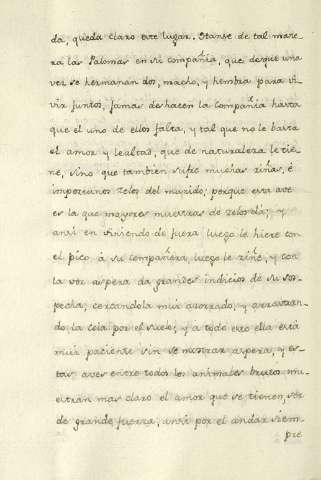 da, queda claro este lugar. Stanse de tal mane-
ra las Palomas en su compañia, que desque una
vez se hermanan dos, macho, y hembra para vi-
vir juntos, jamas deshacen la compañia hasta
que el uno de ellos falta, y tal que no le basta
el amor y lealtad, que de naturaleza le tie-
ne, sino que tambien sufre muchas riñas, é
importunos zelos del marido; porque esta ave
es la que mayores muestras de zelos dá; y
ansi en viniendo de fuera luego le hiere con
el pico á su compañera, luego le riñe, y con
la voz aspera da grandes indicios de su sos-
pecha; cercandola mui azorado, y arrastran-
do la cola por el suelo; y a todo esto ella está
mui paciente sin se mostrar aspera, y es-
tas aves entre todos los animales brutos mu-
estran mas claro el amor que se tienen, ser
de grande fuerza, ansi por el andar siem-
pre